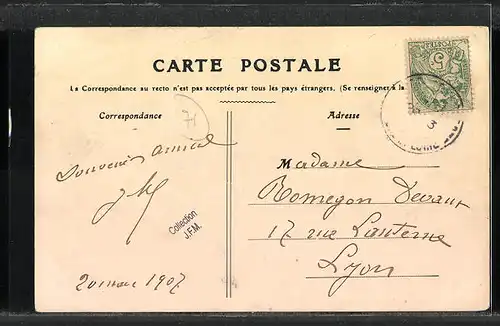 CARTE POSTALE
La Correspondance au recto n'est pas acceptée par tous les pays étrangers. (Se renseigner à la
Correspondance
Adresse
Souvenir amical
JM
20 mars 1907
Collection
J.F.M.
Madame
Romegon Devaux
17 rue Lanterne
Lyon
5